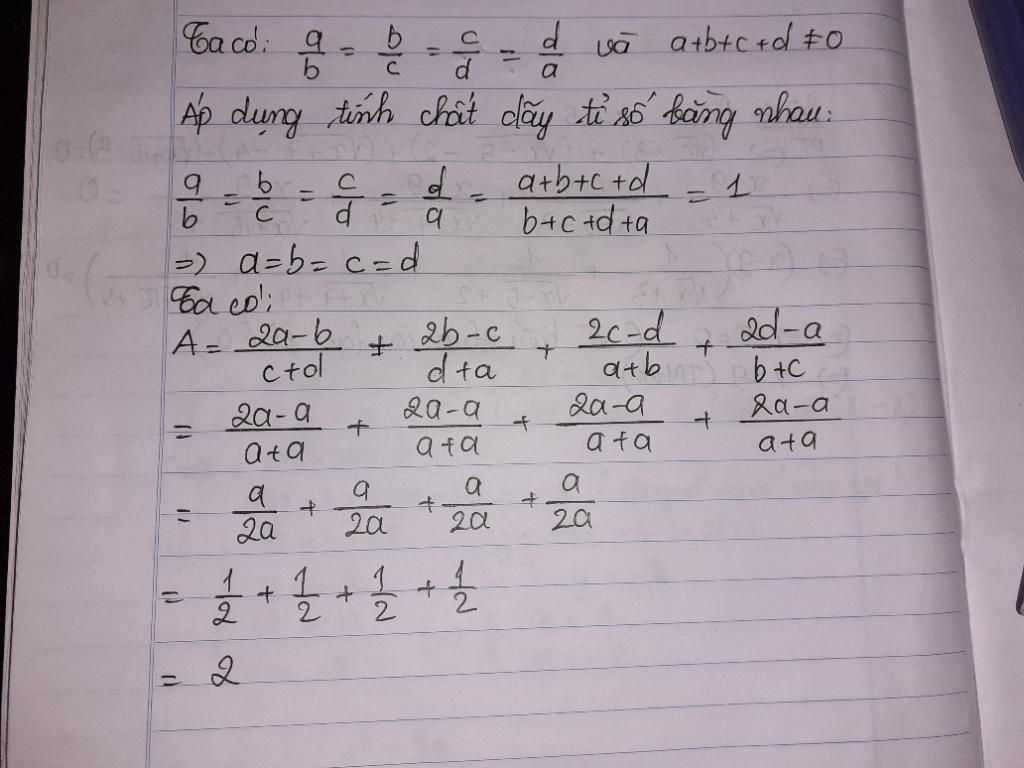 Ta có: a/b = b/c = c/d = d/a và a+b+c+d ≠ 0
Áp dụng tính chất dãy tỉ số bằng nhau:
a/b = b/c = c/d = d/a = (a+b+c+d)/(b+c+d+a) = 1
=> a=b=c=d
Ta có:
A = (2a-b)/(c+d) + (2b-c)/(d+a) + (2c-d)/(a+b) + (2d-a)/(b+c)
= (2a-a)/(a+a) + (2a-a)/(a+a) + (2a-a)/(a+a) + (2a-a)/(a+a)
= a/2a + a/2a + a/2a + a/2a
= 1/2 + 1/2 + 1/2 + 1/2
= 2